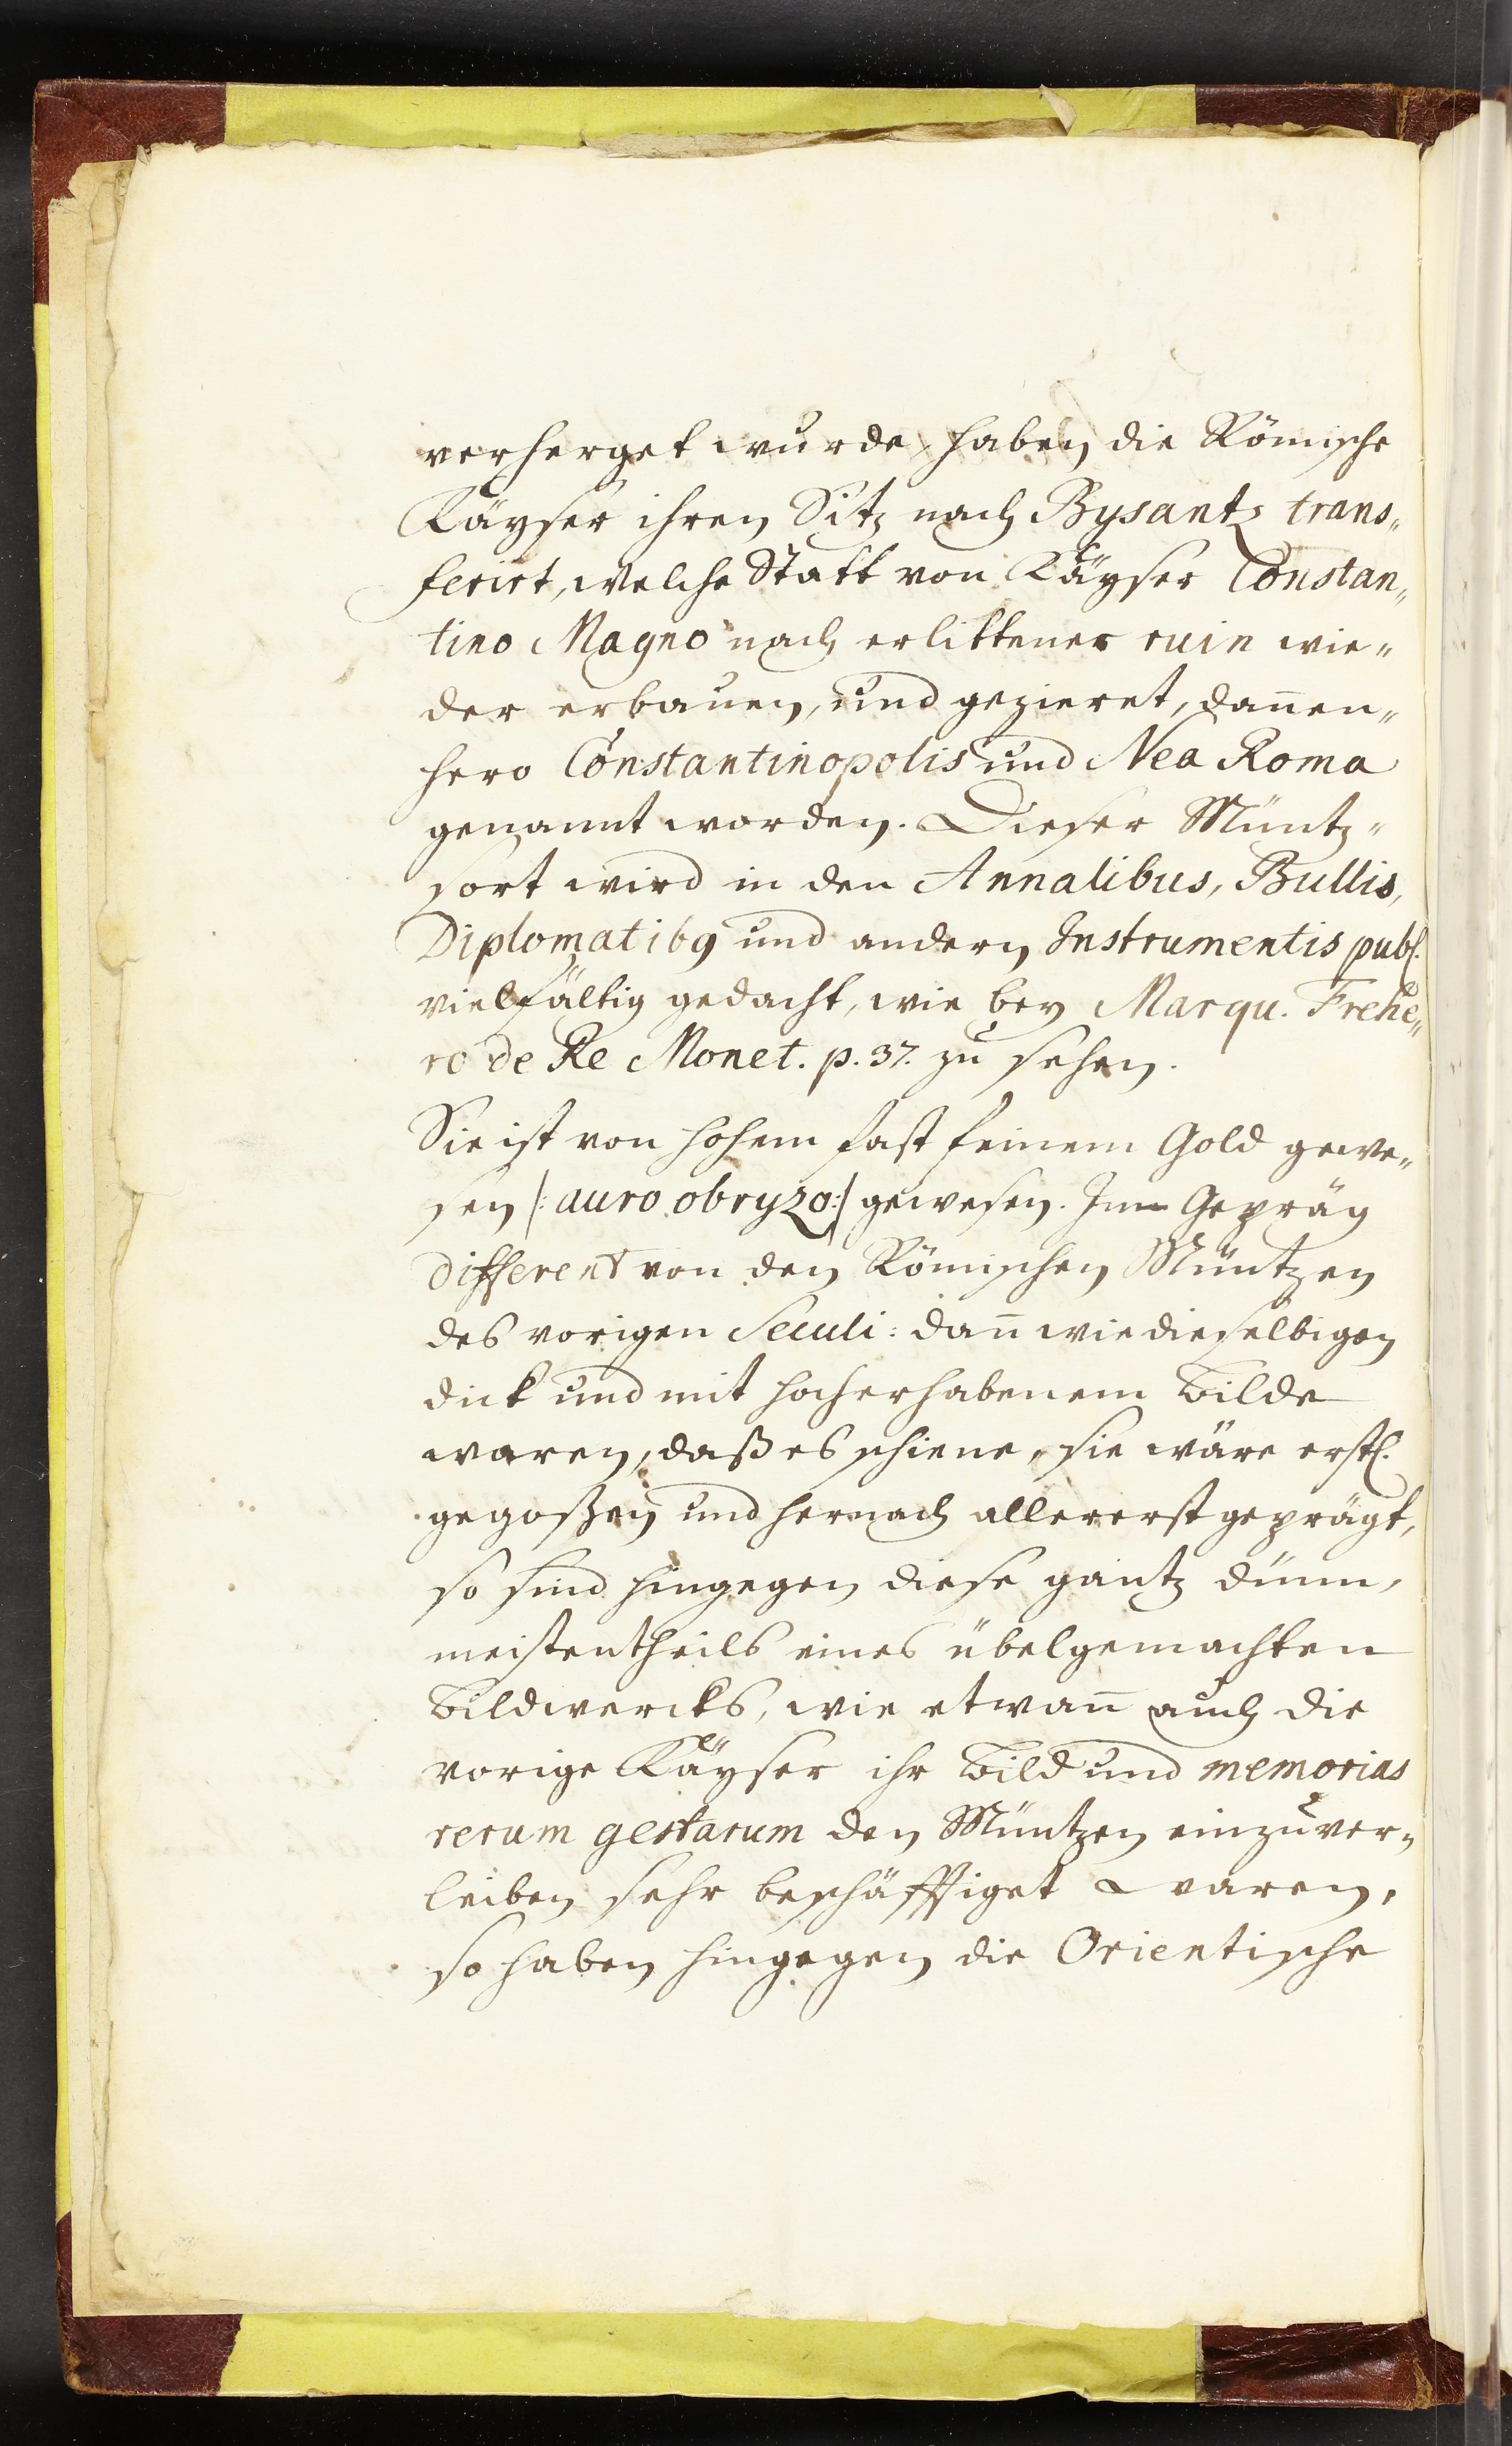 verherget wurde, haben die Römische
Käyser ihren Sitz nach Bysantz trans„
ferirt, welche Statt von Käyser Constan„
tino Magno nach erlittener ruin wie„
der erbauen, und gezieret, dan̄en„
hero Constantinopolis und Nea Roma
genannt worden. Dieser Müntz„
sort wird in den Annalibus, Bullis,
Diplomatib9 und andern Instrumentis publ.
vielfältig gedacht, wie bey Marqu. Frehe„
ro de Re Monet. p. 37. zu sehen.
Sie ist von hohem fast feinem Gold gewe„
sen /: auro obryzo :/ gewesen. Im Gepräg
different von den Römischen Müntzen
des vorigen Seculi: dan̄ wie dieselbigen
dick und mit hocherhabenem Bilde
waren, daß es schiene, sie wäre erstl.
gegoßen und hernach allererst geprägt,
so sind hingegen diese gantz dünn,
meistentheils eines übelgemachten
Bildwercks, wie etwan̄ auch die
vorige Käyser ihr Bild und memorias
rerum gestarum den Müntzen einzuver„
leiben sehr beschäfftiget waren,
so haben hingegen die Orientische